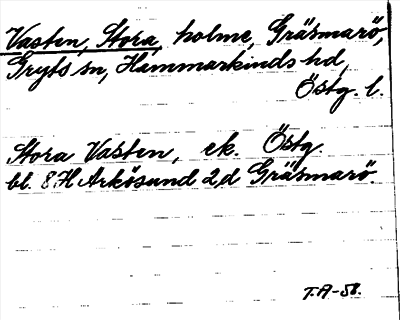 Vasten, Stora, holme, Gräsmarö,
Gryts sn, Hammarkinds hd,
Östg. l.
Stora Vasten, ek. Östg.
bl. 8H Arkösund 2d Gräsmarö.
T.A-58.